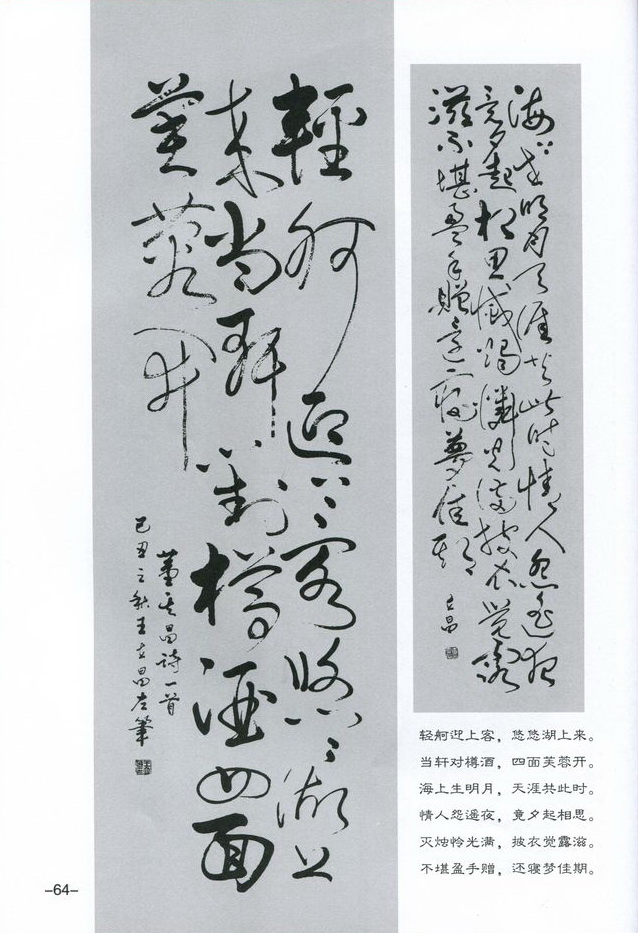 輕舸迎上客悠悠湖上
來當軒對樽酒四面
芙蓉開
董其昌詩一首
己丑之秋王立昌左筆
海上生明月天涯共此時情人怨遙夜
竟夕起相思滅燭憐光滿披衣覺露
滋不堪盈手贈還寢夢佳期
立昌
轻舸迎上客，悠悠湖上来。
当轩对樽酒，四面芙蓉开。
海上生明月，天涯共此时。
情人怨遥夜，竟夕起相思。
灭烛怜光满，披衣觉露滋。
不堪盈手赠，还寝梦佳期。
-64-